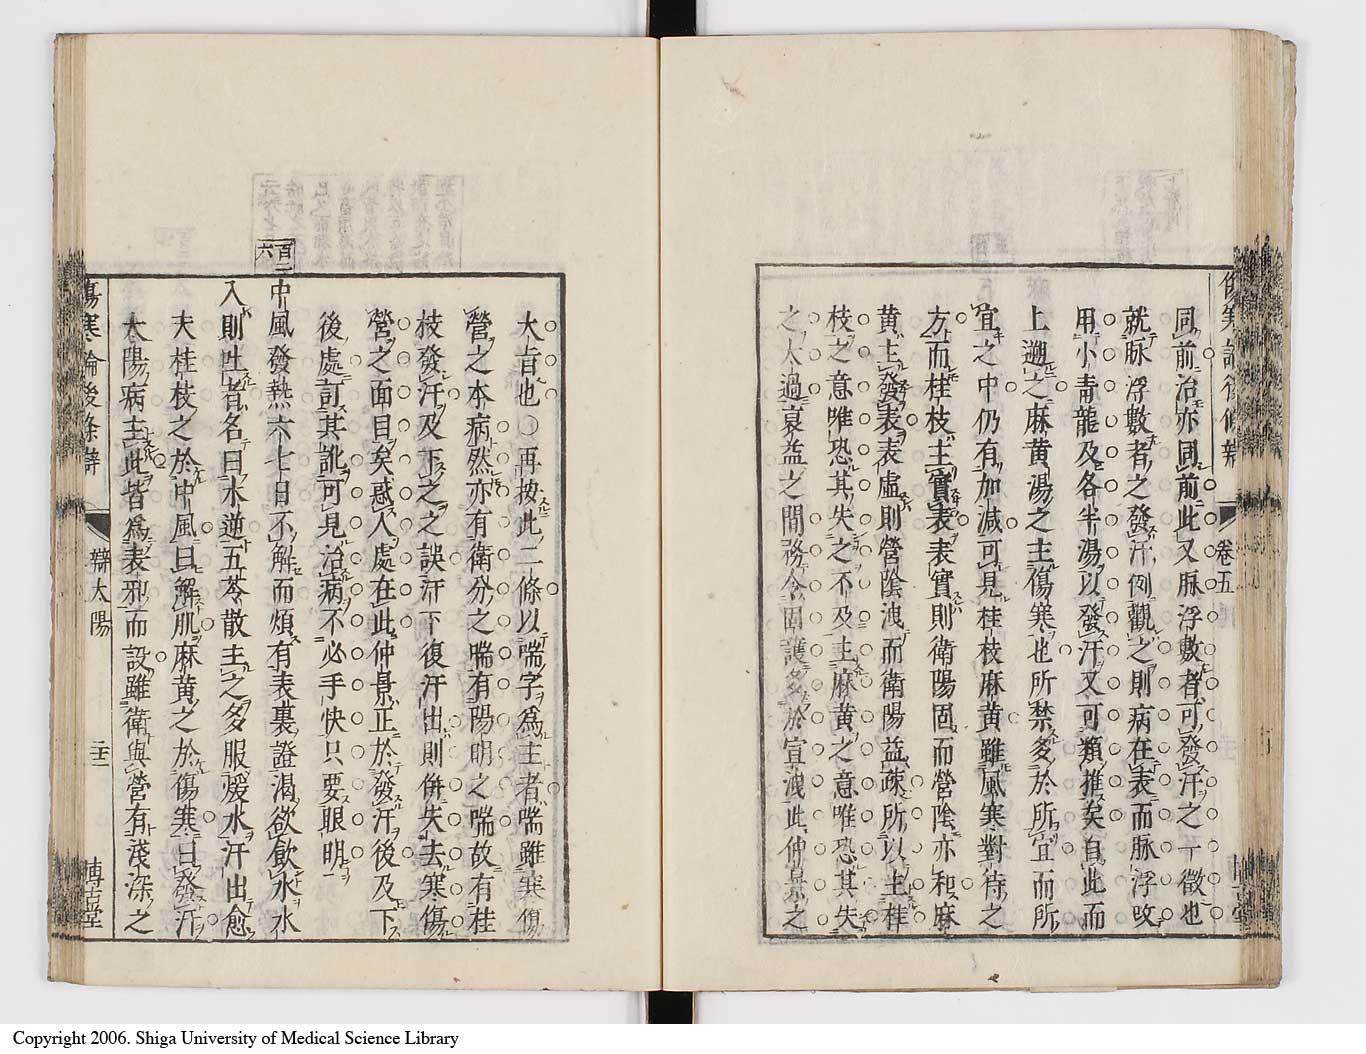 同前治亦同前此又脉浮數者可發汗之一徵也
就脉浮數者之發汗例觀之則病在表而脉浮咬
用小青龍及各半湯以發汗又可類推矣自此而
上遡之麻黃湯之主傷寒也所禁多於所宜而所
宜之中仍有加減可見桂枝麻黃雖風寒對待之
方而桂枝主實表表實則衛陽固而營陰亦和麻
黃主發表表虛則營陰洩而衛陽益疎所以主桂
枝之意唯恐其失之不及主麻黃之意唯恐其失
之太過裒益之間務令固護多於宣洩此仲景之
卷五
大旨也〇再按此二條以喘字爲主者喘雖寒傷
營之本病然亦有衛分之喘有陽明之喘故有桂
枝發汗及下之之誤汗下後汗出則併失去寒傷
營之面目矣惑人處在此仲景正於發汗後及下
後處訂其訛可見治病不必手快只要眼明
百二六
中風發熱六七日不解而煩有表裏證渴欲飲水水
入則吐者名曰水逆五苓散主之多服煖水汗出愈
夫桂枝之於中風曰解肌麻黃之於傷寒曰發汗
太陽病主此皆爲表邪而設雖衛與營有淺深之
傷寒論後條辯
辯太陽
二十二
博古堂
Copyright 2006. Shiga University of Medical Science Library